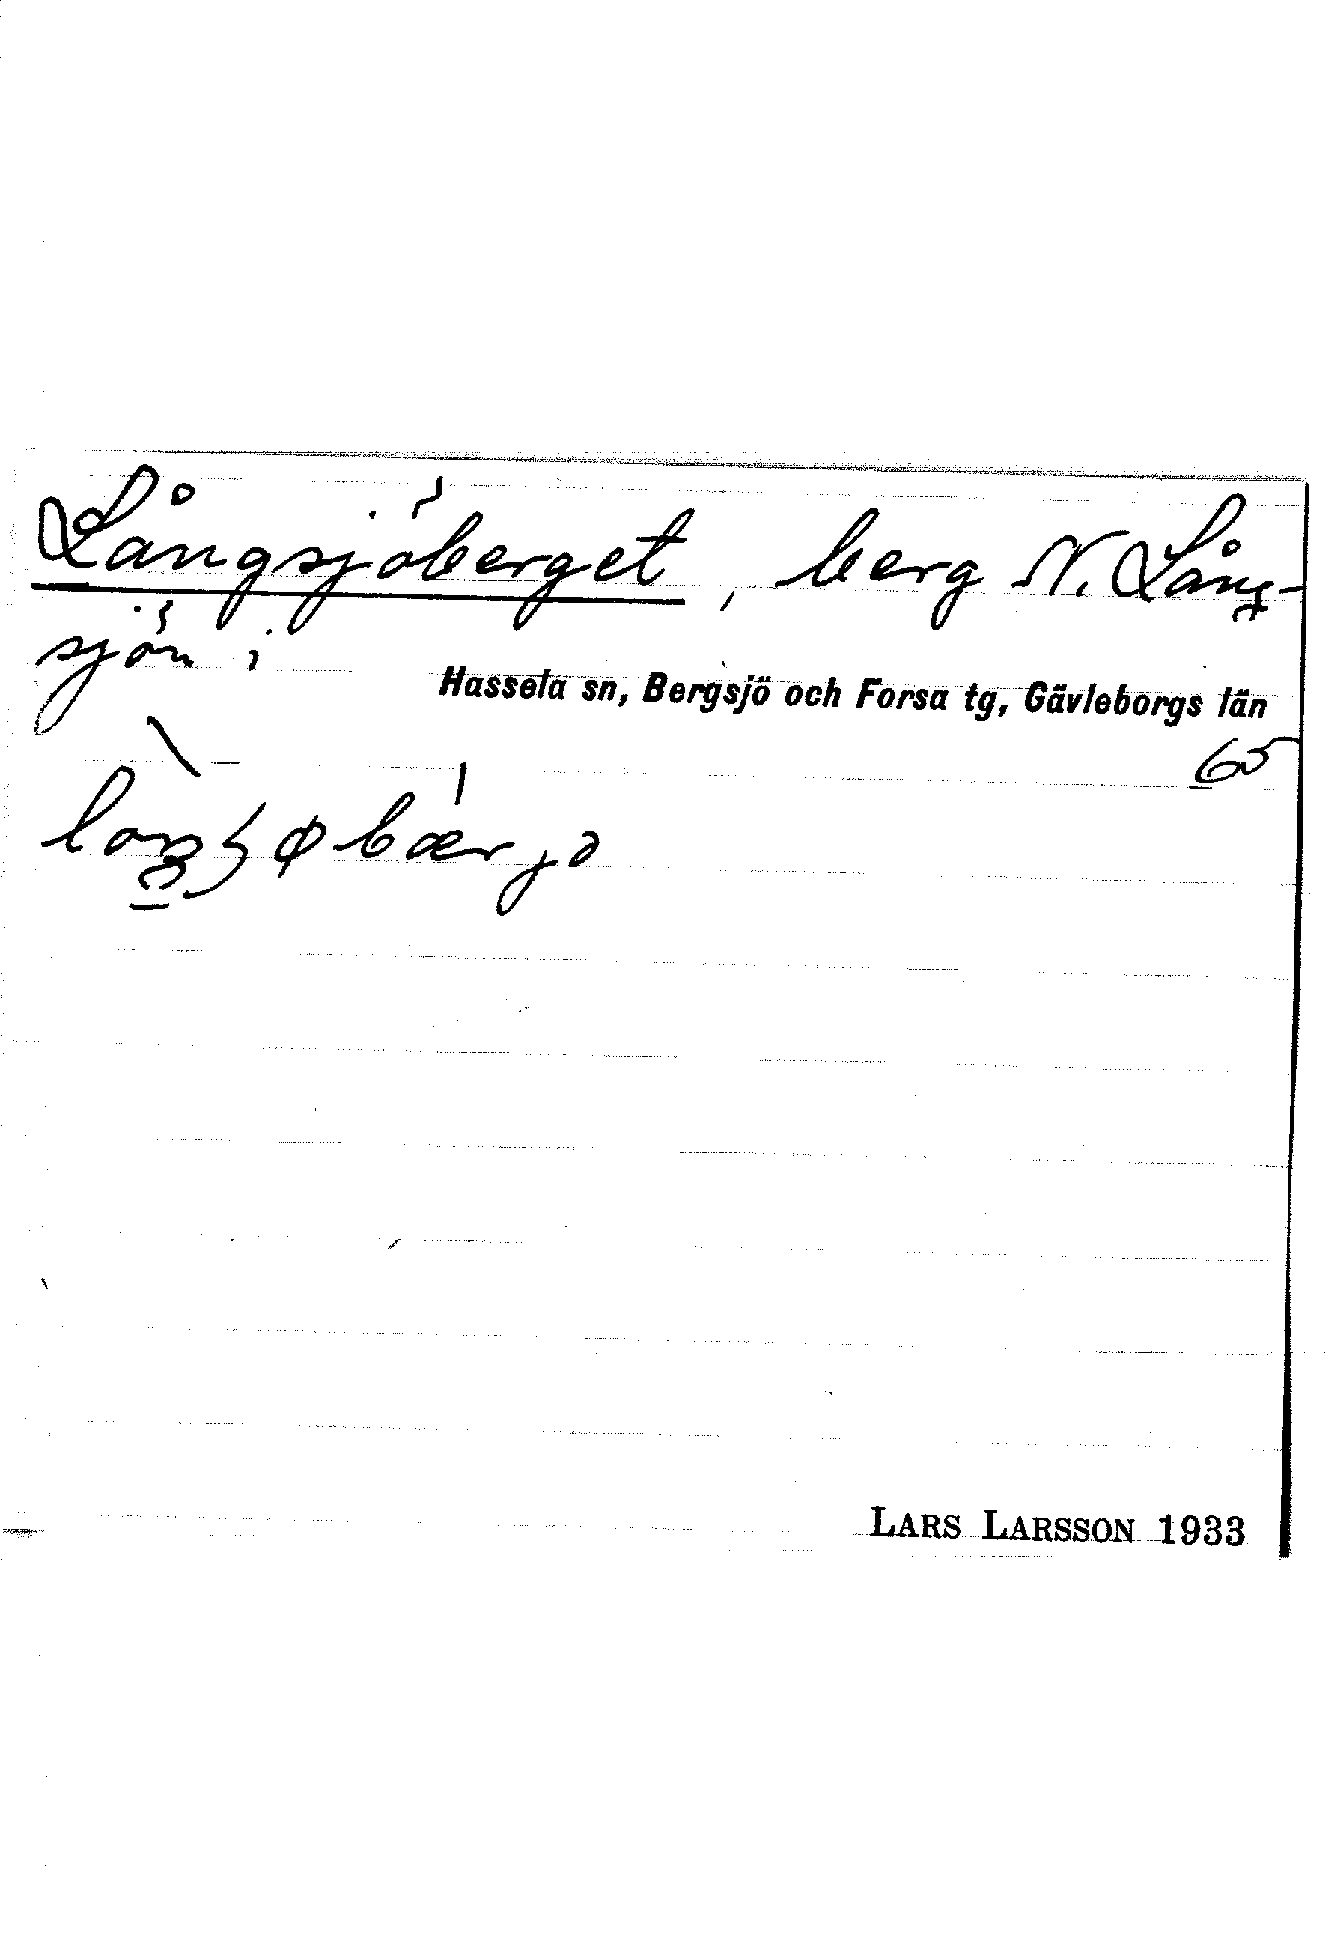 Långsjöberget, berg N. Lång-
sjön i
Hassela sn, Bergsjö och Forsa tg, Gävleborgs län
65
LARS LARSSON 1933